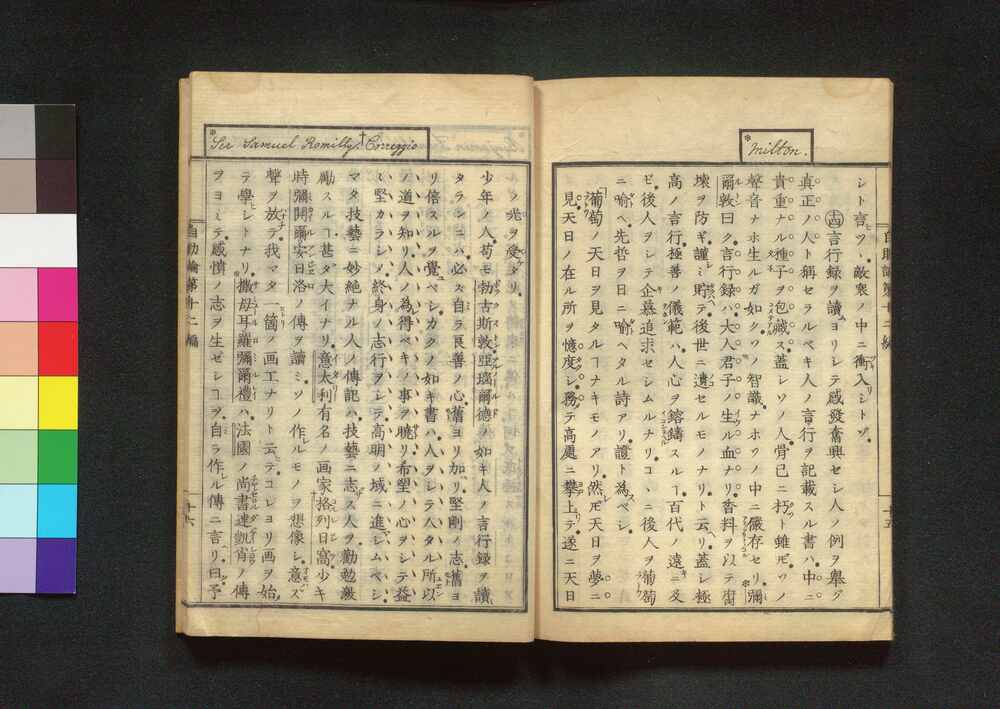 Milton.
シト言ツヽ敵衆ノ中ニ衝入シトゾ
十四 言行録ヲ讀ムヨリシテ感發奮興セシ人ノ例ヲ舉グ
真正ノ人ト稱セラルベキ人ノ言行ヲ記載スル書ハ中ニ
貴重ナル種子ヲ包藏ス蓋シソノ人骨已ニ朽ト雖𪜈ソノ
聲音ナホ生ルガ如クソノ智識ナホソノ中ニ儼存セリ彌
爾敦曰ク言行録ハ大人君子ノ生ル血ナリ香料ヲ以テ
壞ヲ防ギ謹ミ貯テ後世ニ遺セルモノナリト云ヘリ蓋シ極
高ノ言行極善ノ儀範ハ人心ヲ鎔鑄スルヿ百代ノ遠ニ及
ビ後人ヲシテ企慕追求セシムルナリコヽニ後人ヲ葡萄
ニ喩ヘ先哲ヲ日ニ喩ヘタル詩アリ證ト為スベシ
葡萄ノ天日ヲ見タルヿナキモノアリ然𪜈天日ヲ夢ニ
見天日ノ在ル所ヲ憶度シ務テ高處ニ攀上テ遂ニ天日
自助論第十二編
十五
Sir Samuel Romilly. Correggio
ルノ光ヲ受タリ
少年ノ人苟モ勃古斯敦亞瑙爾德ノ如キ人ノ言行録ヲ讀
タランニハ必ズ自ラ良善ノ心舊ヨリ加リ堅剛ノ志舊ヨ
リ倍スルヲ覺ユベシカクノ如キ書ハ人ヲシテ人タル所以
ノ道ヲ知リ人ノ為得ベキノ事ヲ曉リ希望ノ心ヲシテ益
〻堅カラシメ終身ノ志行ヲシテ高明ノ域ニ進シムベシ
マタ技藝ニ妙絶ナル人ノ傳記ハ技藝ニ志ス人ヲ勸勉激
勵スルヿ甚タ大イナリ意太利有名ノ画家格列日高少キ
時彌閞爾安日洛ノ傳ヲ讀ミソノ作ルモノヲ想像シ意ズ
聲ヲ放テ我マタ一箇ノ画工ナリト云テコレヨリ画ヲ始
テ學ビシトナリ撒母耳羅彌爾禮ハ法國ノ尚書達凱宵ノ傳
ヲヨミテ感憤ノ志ヲ生ゼシヿヲ自ラ作ル傳ニ言リ曰予
自助論第十二編
十六